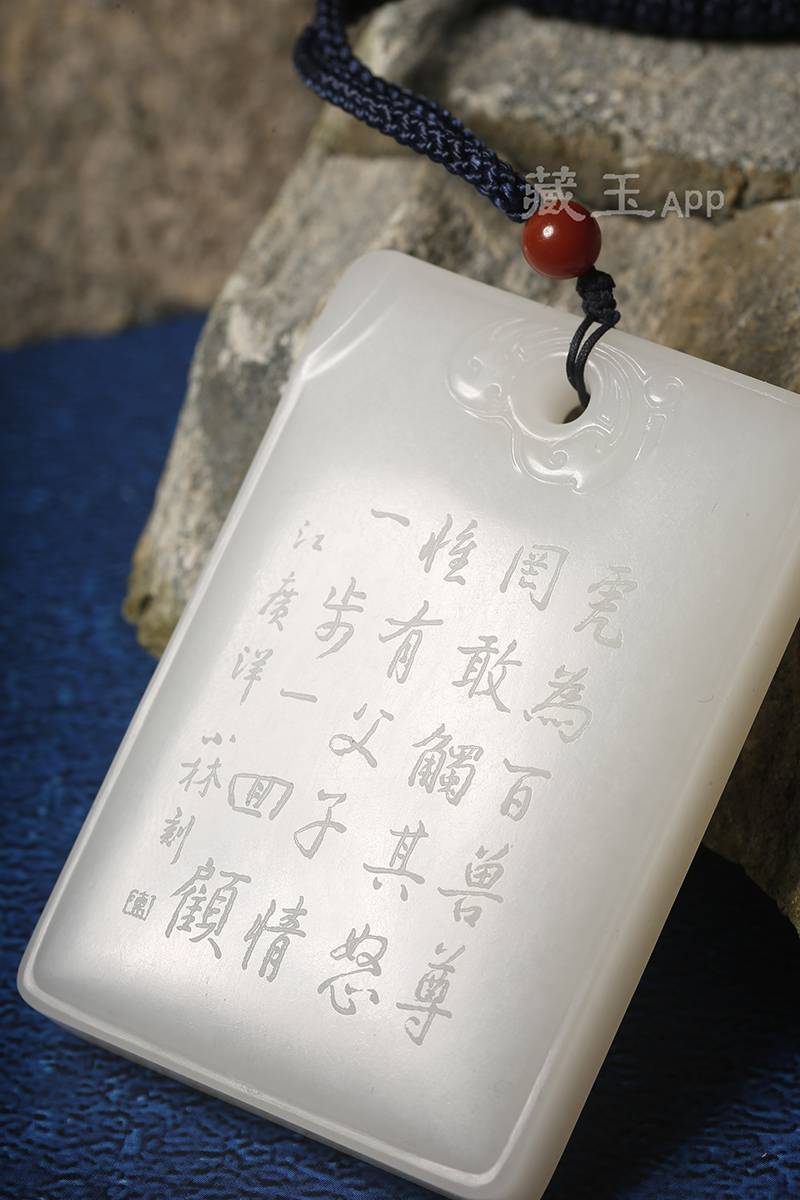 藏玉APP
虎為百兽尊
罔敢觸其怒
惟有父子情
一步一回顧
江廣洋
小林刻